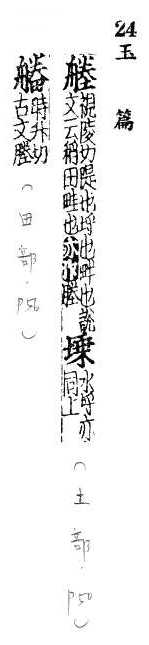 24 玉篇
塍 視陵切堤也埒也畔也說
文云稻田畦也亦作
堘 水埒亦
同上
(土部．p.50)
時升切
古文塍
(田部．p.50)